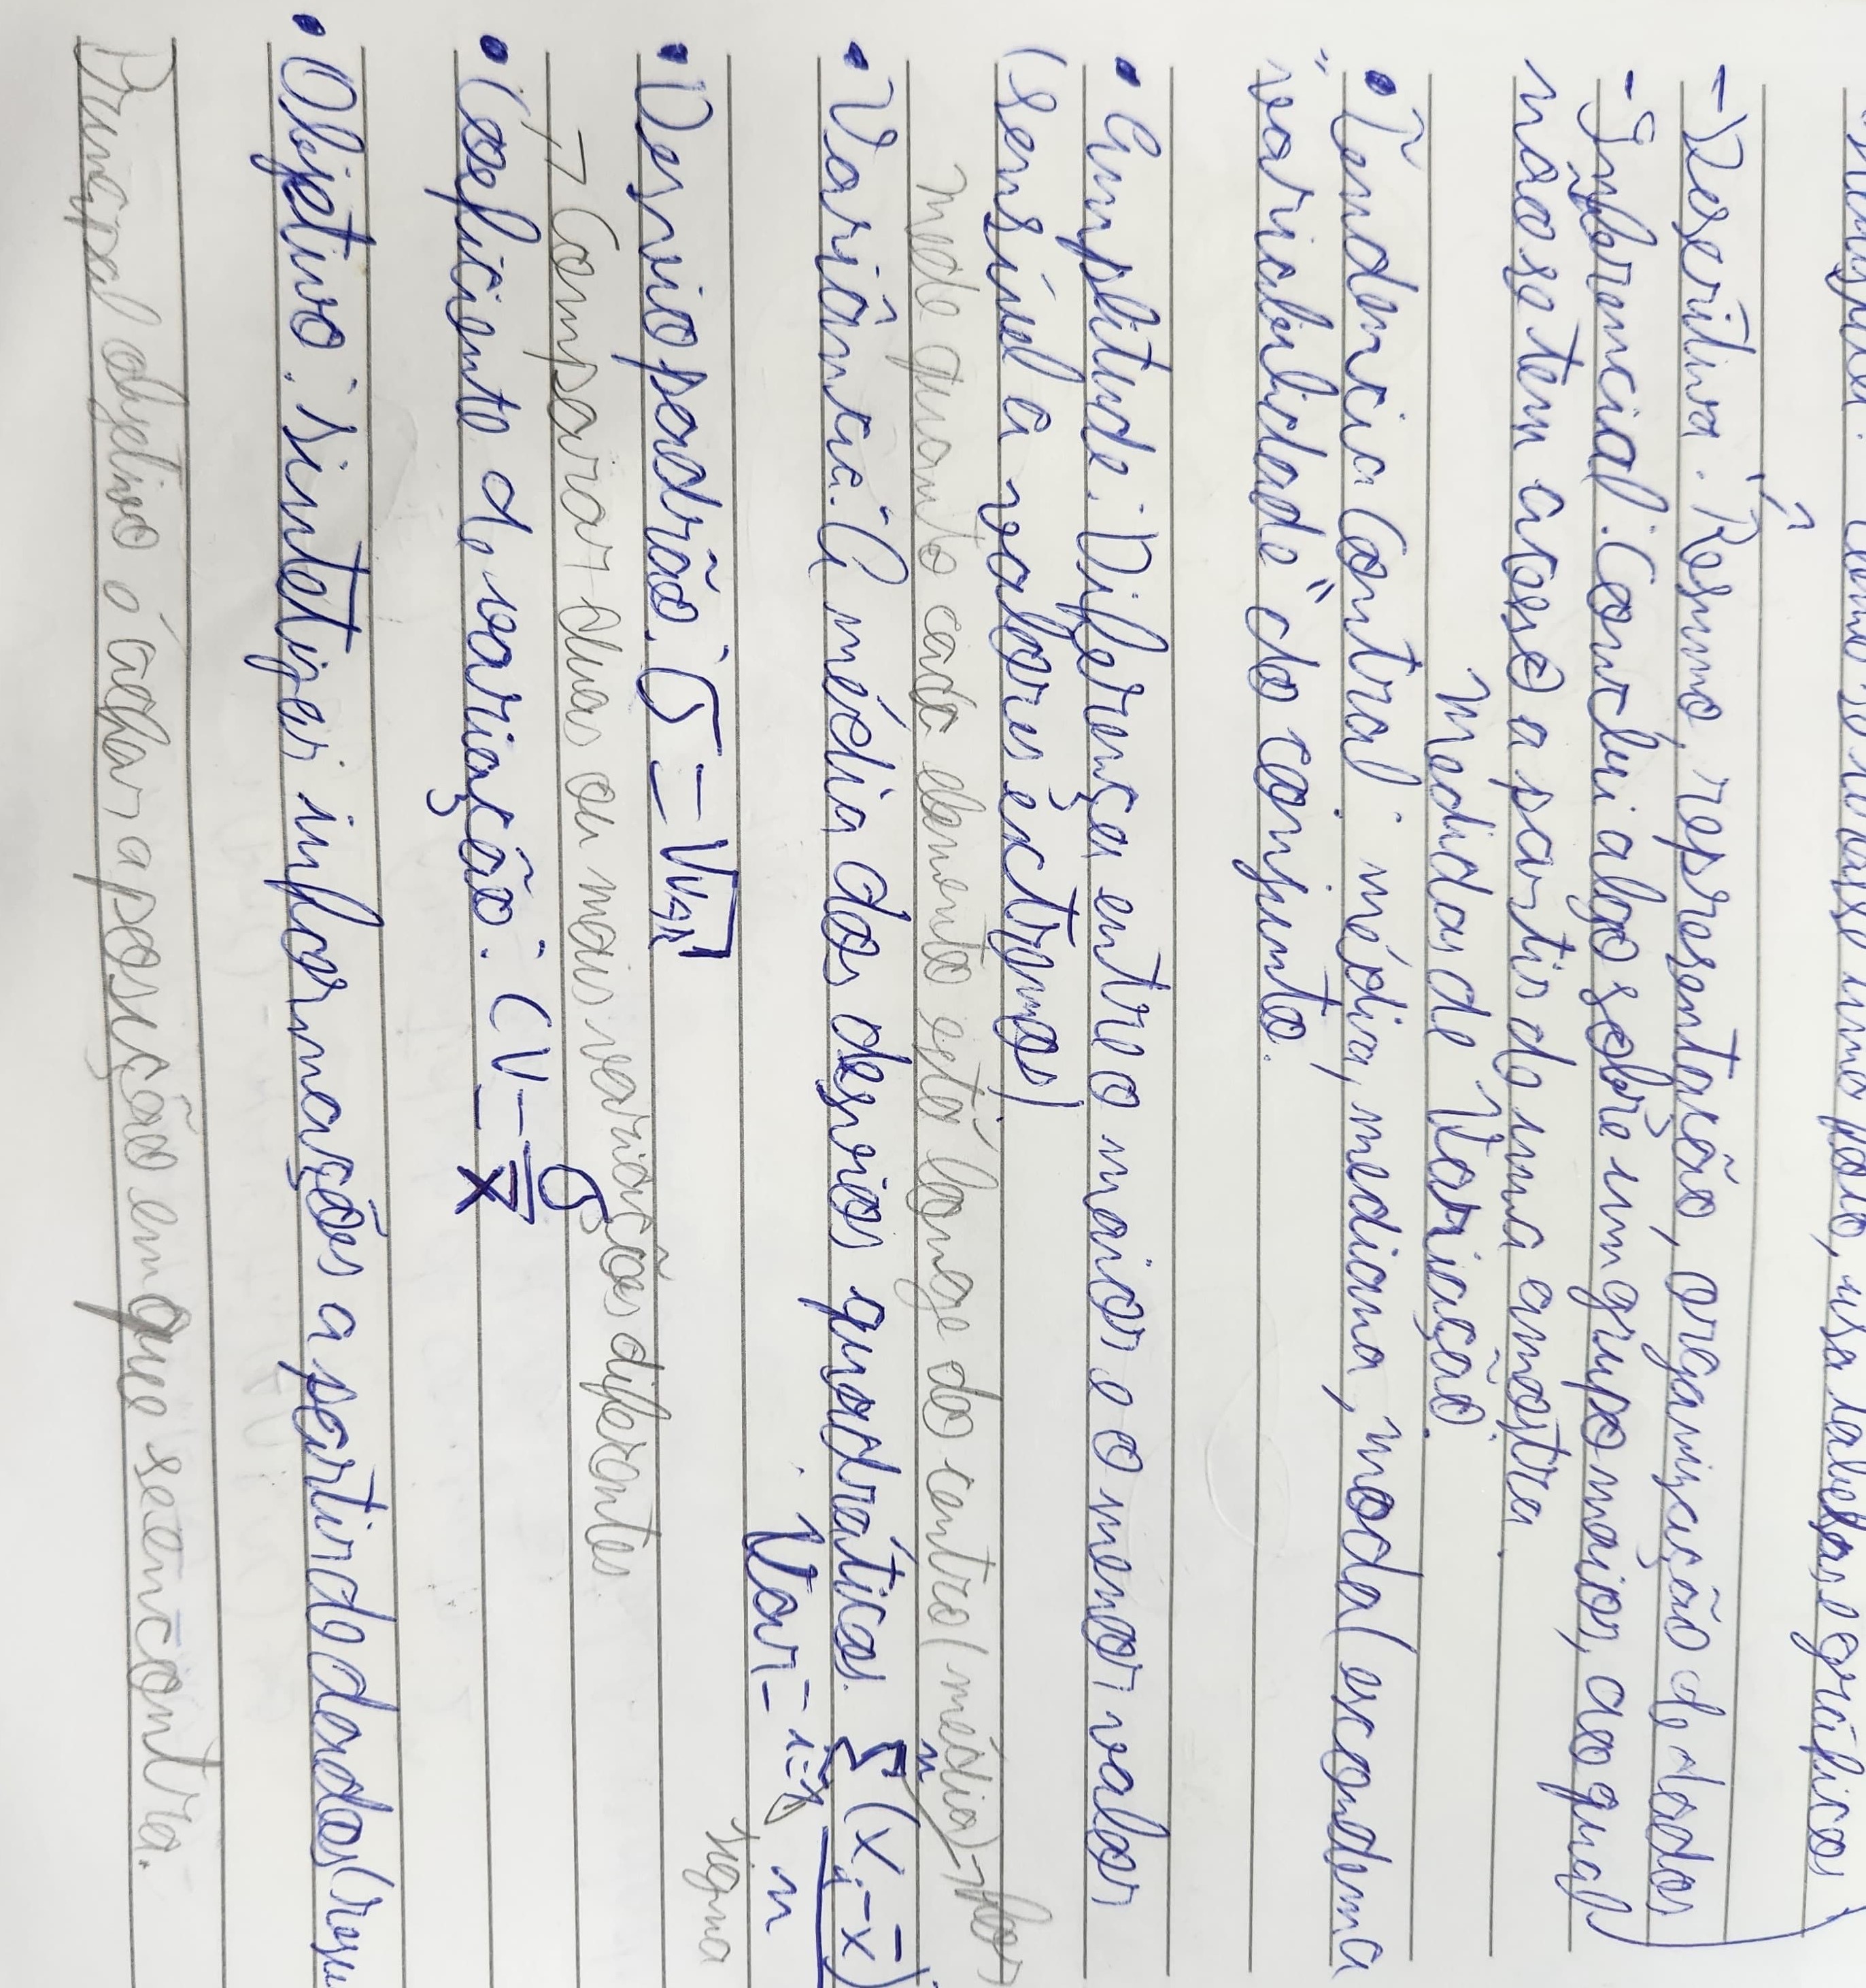 como se usa tabelas e gráficos
-> Descritiva: Resumo, representação, organização de dados
- Inferencial: Conclui algo sobre um grupo maior, ao qual
não se tem acesso a partir de uma amostra.
Medidas de Variação.
• Tendencia Central: média, mediana, moda (escondem a
"variabilidade" do conjunto.
• Amplitude: Diferença entre o maior e o menor valor
(sensível a valores extremos)
mede quanto cada elemento está longe do centro (média)
• Variância: A média dos desvios quadráticos.
Var = n Σ i=1 (xi - x̄) n
sigma
• Desvio padrão: σ = √Var
→ Comparar duas ou mais variações diferentes
• Coeficiente de variação: CV = σ x̄
• Objetivo: sintetizar informações a partir de dados (resu
Principal objetivo é achar a posição em que se encontra.